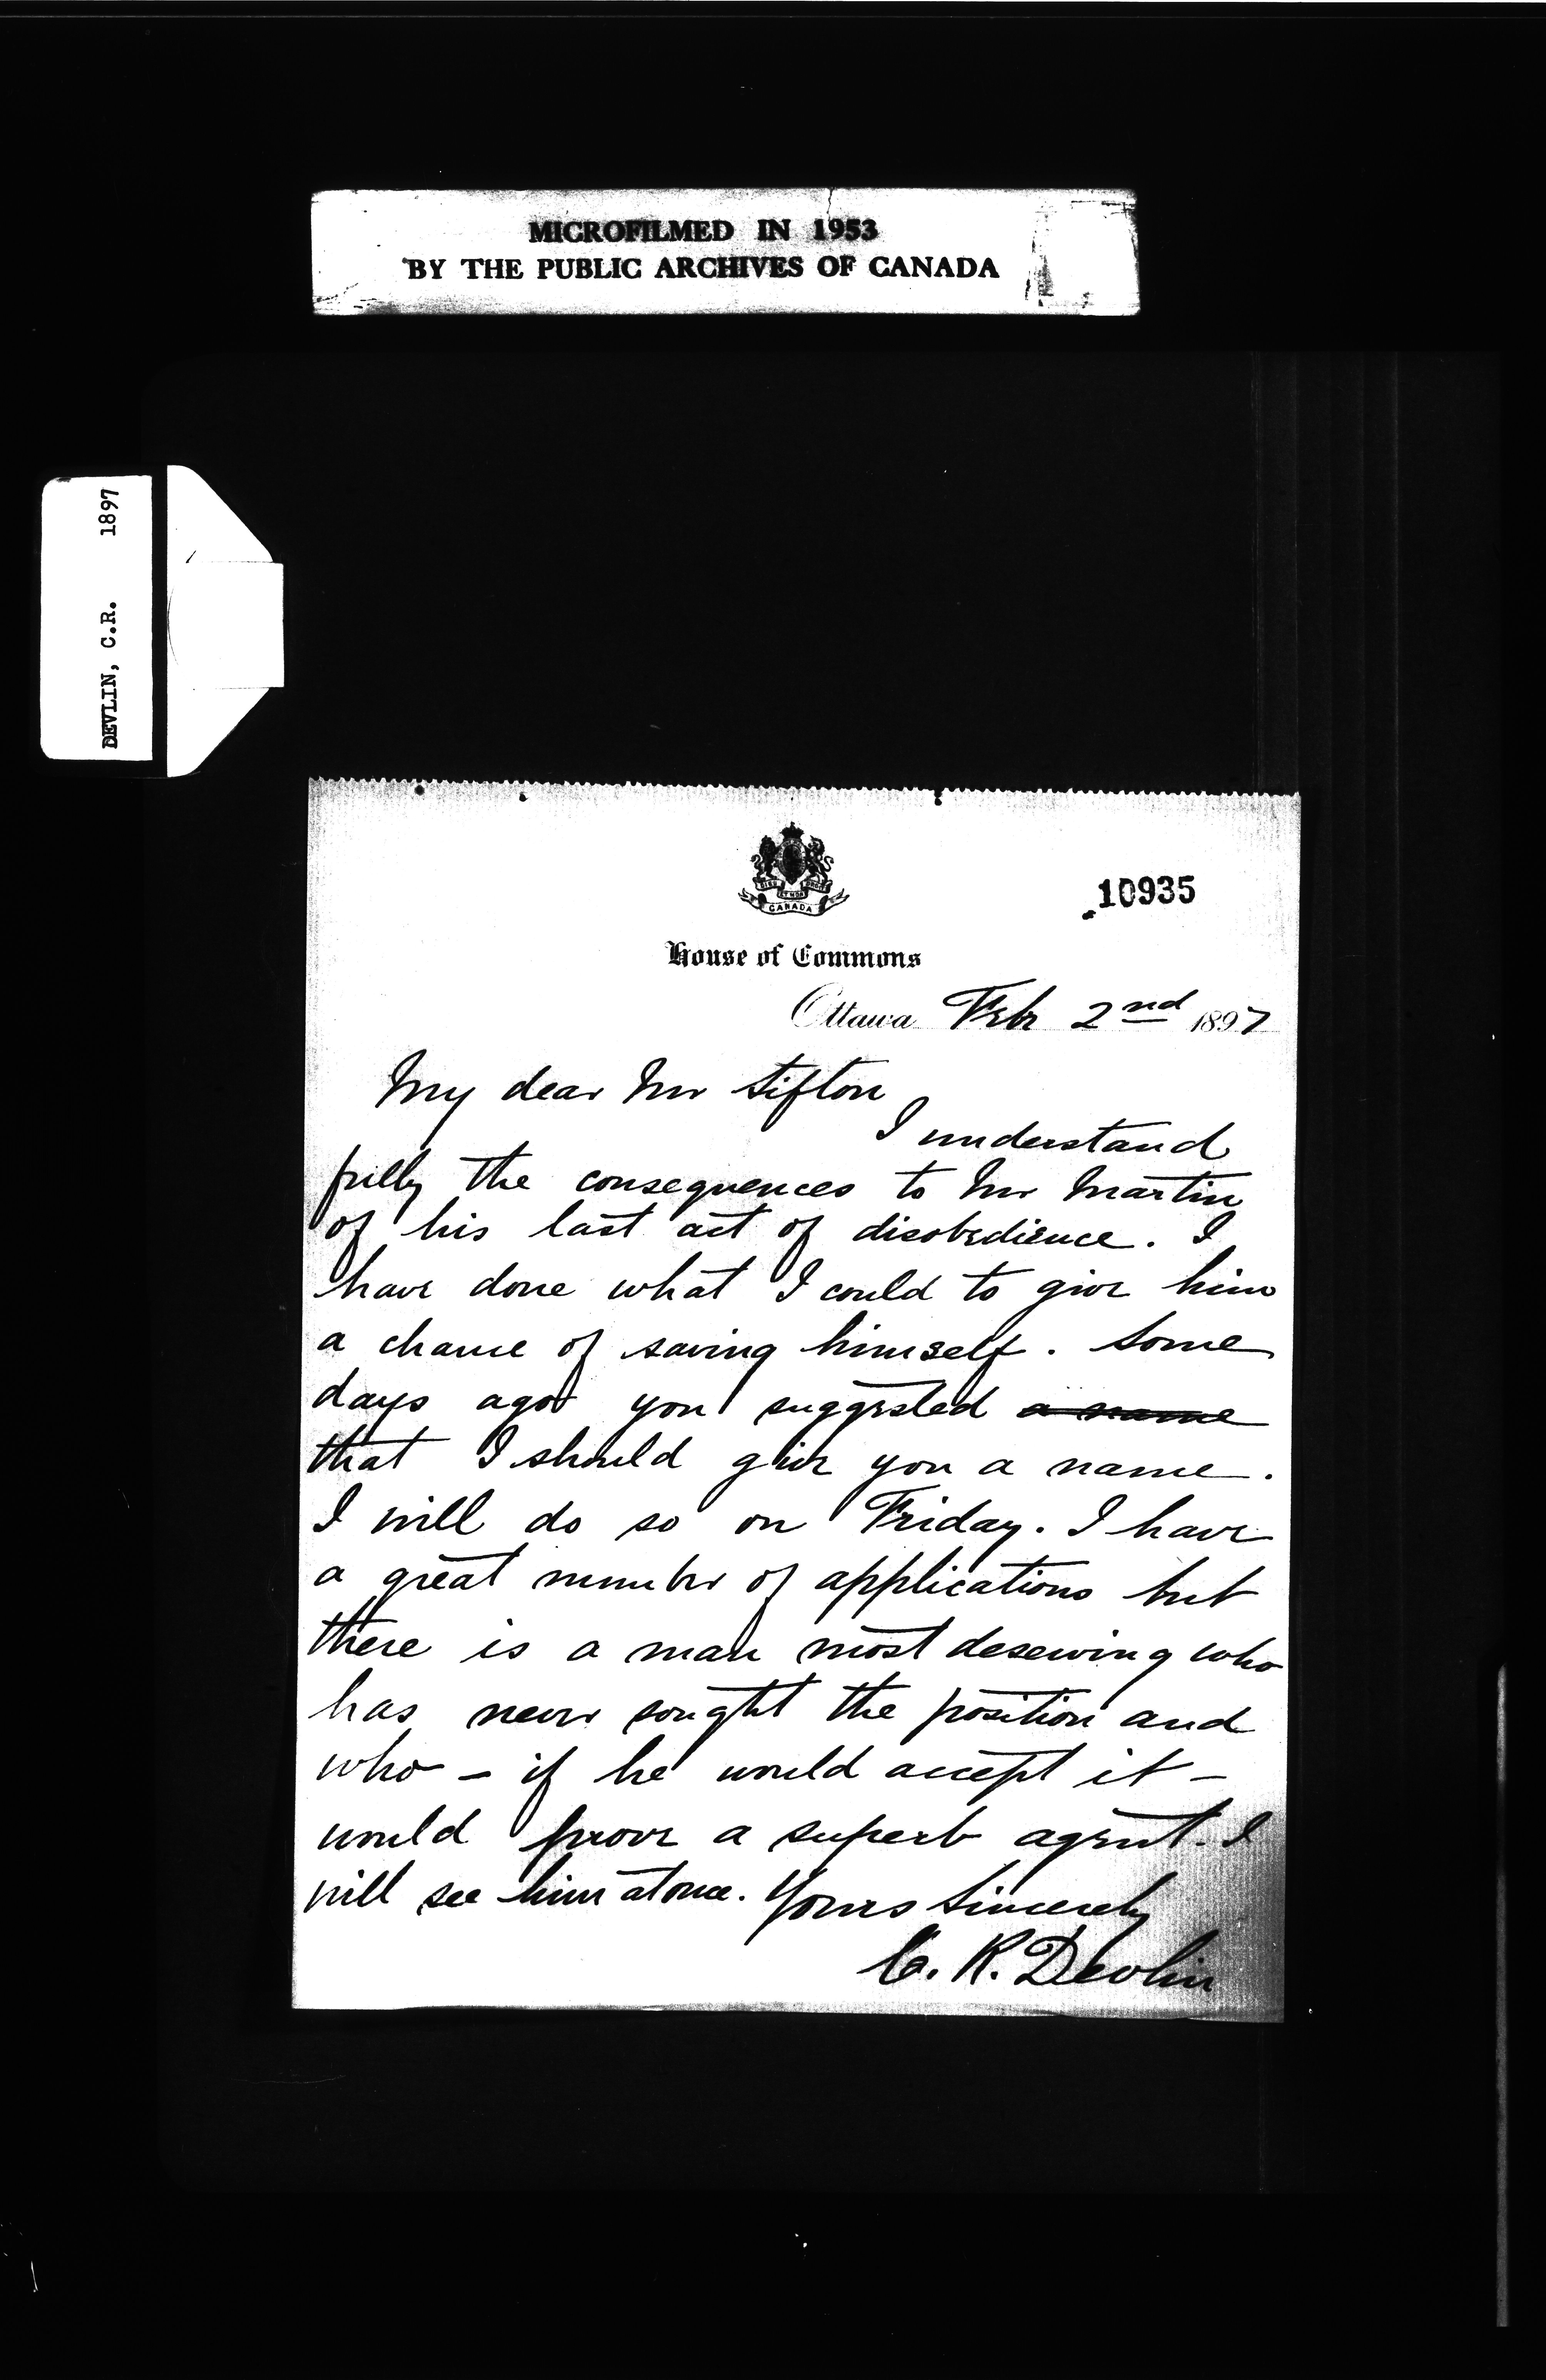 MICROFILMED IN 1953
BY THE PUBLIC ARCHIVES OF CANADA
DEVLIN, C.R. 1897
CANADA
10935
House of Commons
Ottawa Feb 2nd 1897
My dear Mr Sifton
I understand
fully the consequences to Mr Martin
of his last act of disobedience. I
have done what I could to give him
a chance of saving himself. Some
days ago you suggested a name
that I should give you a name.
I will do so on Friday. I have
a great number of applications but
there is a man most deserving who
has never sought the position and
who - if he would accept it -
would prove a superb agent. I
will see him at once. Yours Sincerely
C. R. Devlin